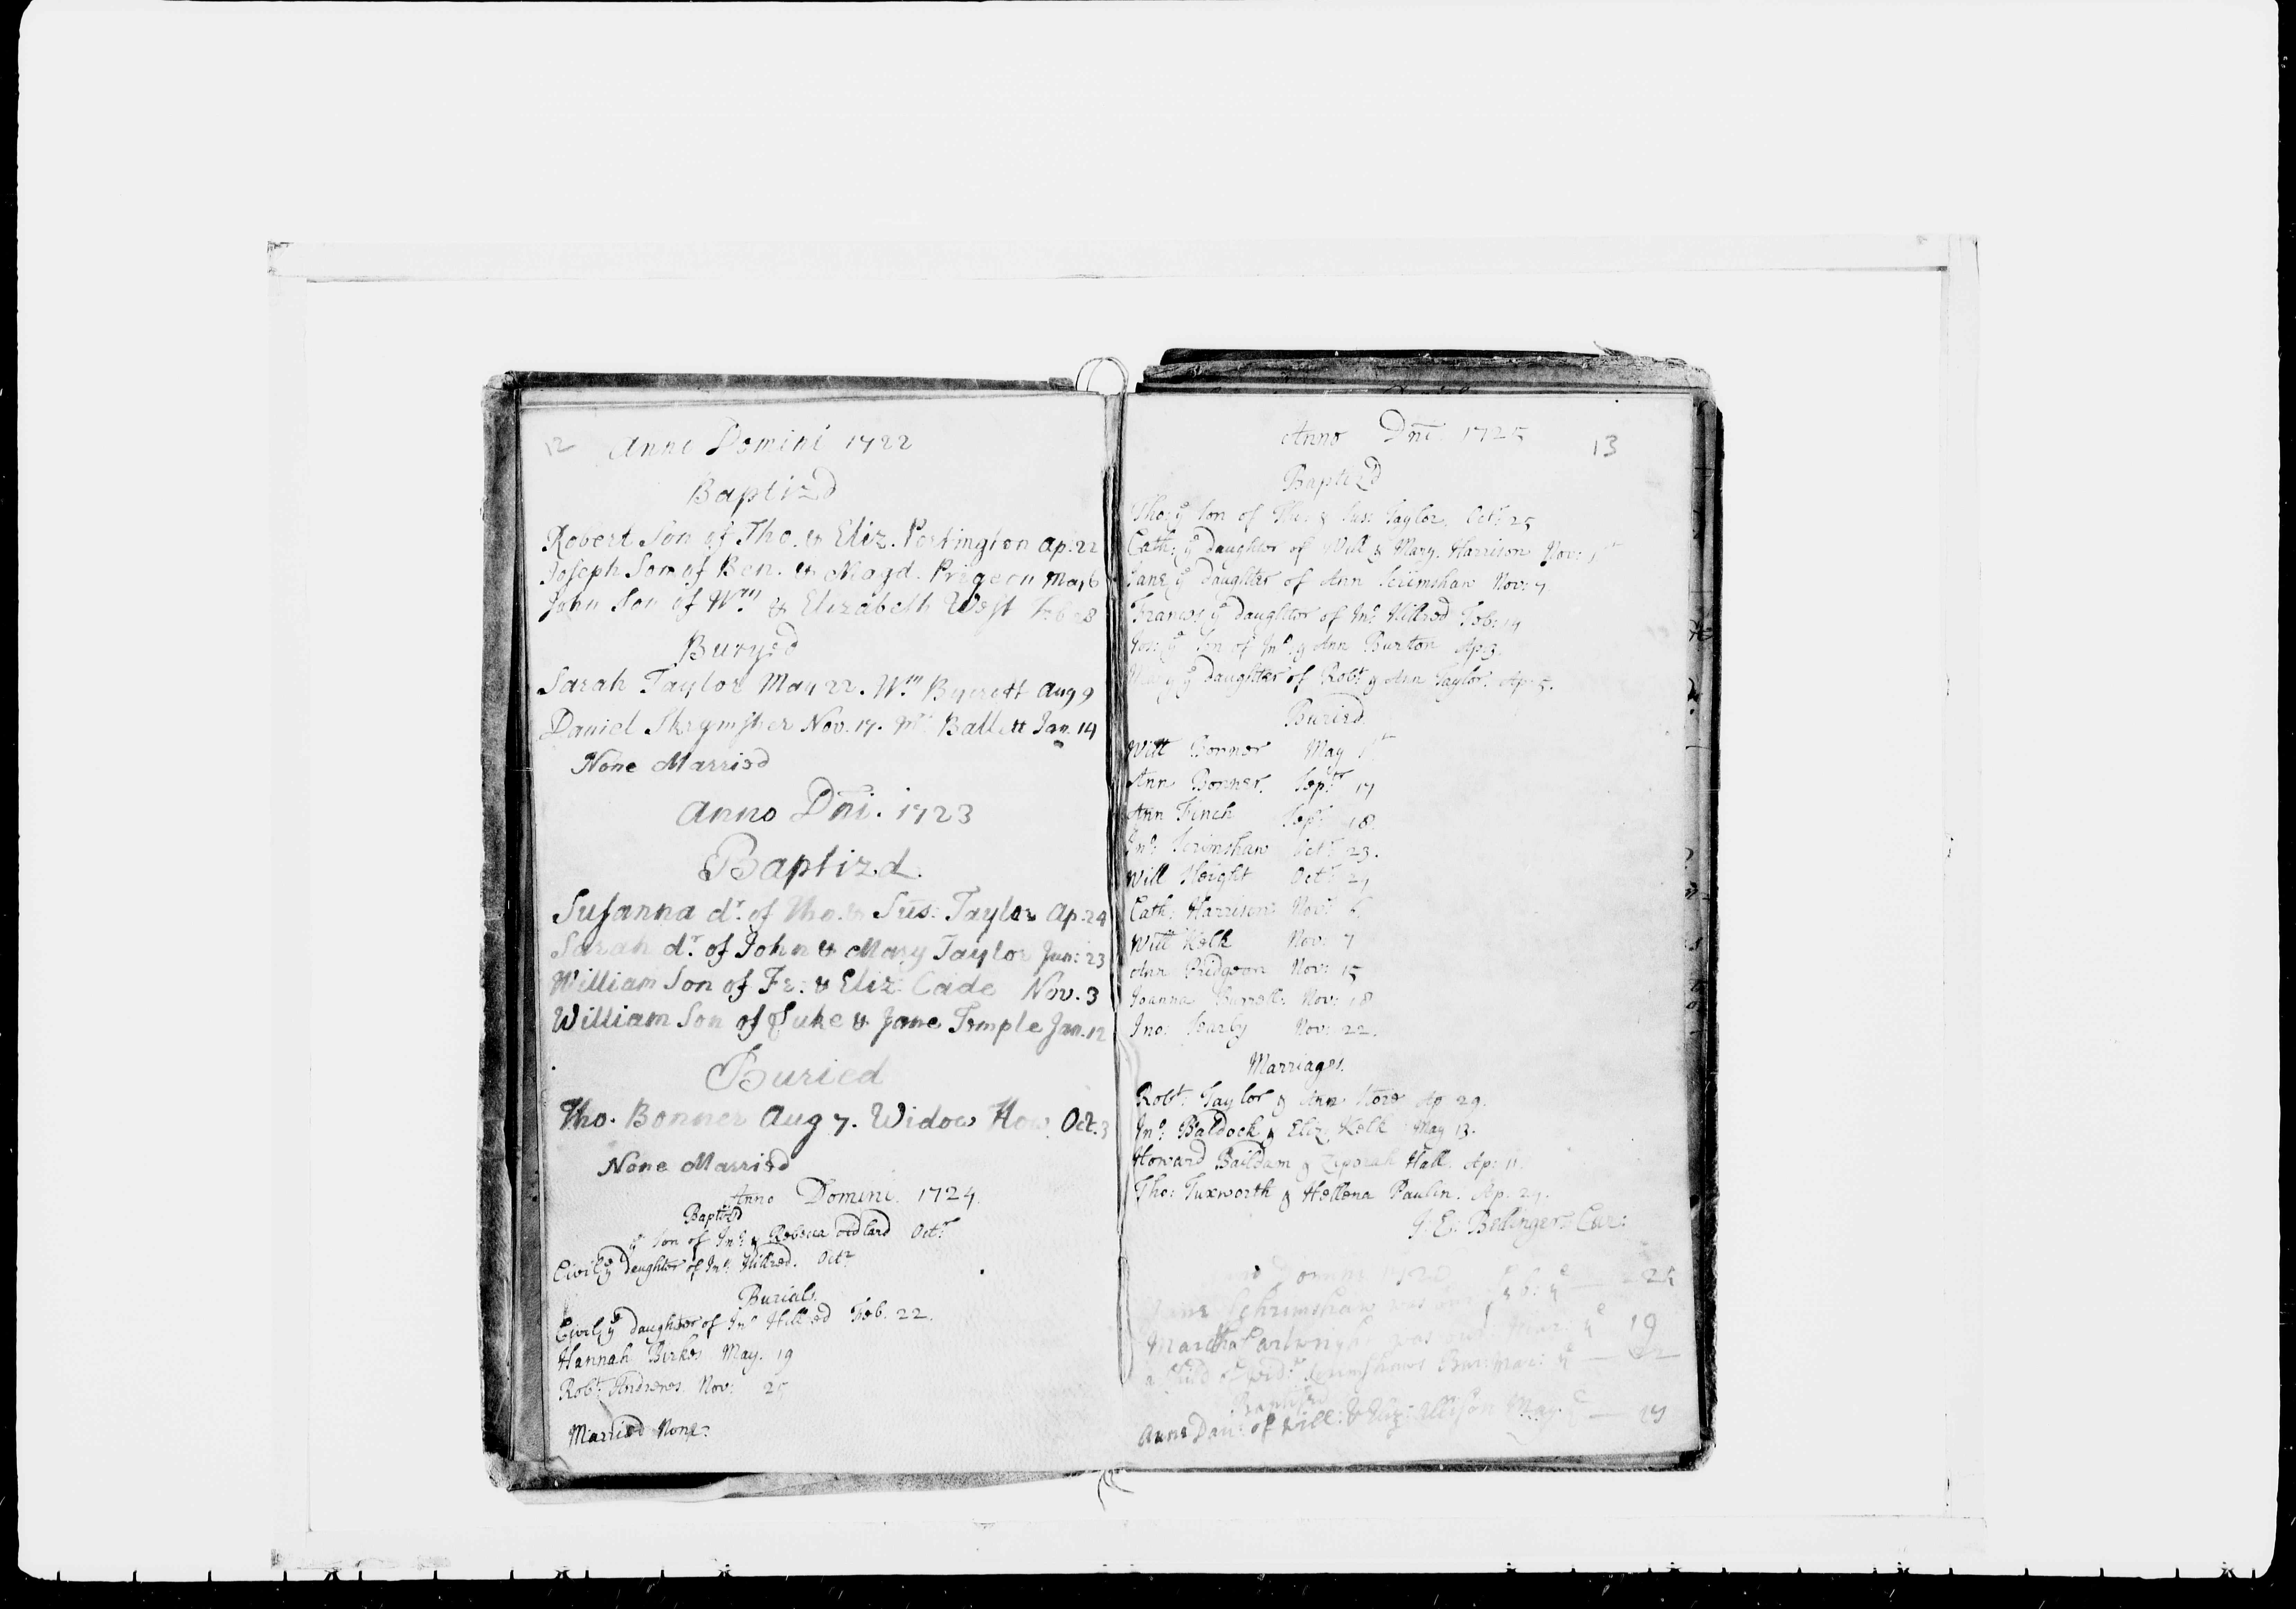 12
Anno Domini 1722
Baptizd
Robert Son of Tho. & Eliz. Porkington Ap: 22
Joseph Son of Ben. & Magd. Prigeon May 6
John Son of Wm & Elizabeth West Feb 28
Buryed
Sarah Taylor May 22. Wm Bycrett Aug 9
Daniel Skrymsher Nov. 17. Ballett Jan. 14
None Married
Anno Dni. 1723
Baptizd.
Susanna dr. of Tho. & Sus: Taylor Ap: 24
Sarah dr. of John & Mary Taylor Jun: 23
William Son of Fr: & Eliz: Cade Nov. 3
William Son of Luke & Jane Temple Jan. 12
Buried
Tho. Bonner Aug 7. Widow How Oct. 3
None Married
Anno Domini. 1724.
Baptizd
ye Son of Jno: & Rebecca Odlard Octr
Civil ye Daughter of Jno: Hillred. Octr
Burials.
Civil ye Daughter of Jno Hillred Feb. 22.
Hannah Birks May. 19
Robt: Andrews. Nov: 25
Married None.
13
Anno Dni: 1725
Baptizd
Tho: ye Son of Tho: & Sus: Taylor. Octr: 25
Cath: ye Daughter of Will & Mary. Harrison Nov: 1st
Jane ye Daughter of Ann Scrimshaw Nov: 7
Frances ye Daughter of Jno: Hillred Feb: 14
Jos: ye Son of Jno: & Ann Burton Ap: 3.
Mary ye Daughter of Robt: & Ann Taylor. Ap: 5.
Buried.
Will Bonner May 1st
Ann Bonner. Septr 17
Ann Finch Septr 18.
Jno: Scrimshaw Octr: 23.
Will Height Octr 27
Cath: Harrison Novr: 6
Will Kelk Nov: 7
Ann Pridgeon Nov: 15
Joanna Burrell: Nov: 18
Jno: Nov: 22.
Marriages.
Robt: Taylor & Ann Ap 29.
Jno: Baldock & Eliz: Kelk May 13.
Howard Baildam & Zeporah Hall. Ap: 11.
Tho: Tuxworth & Hellena Paulin. Ap. 27.
J: E: Bellinger: Cur:
Domini
Schrimshaw was ye — 25
Martha Cartwright was Mar: ye 19
a Child of Scrimshaws Bur: Mar: ye — 22
Baptised
Anne Dau: of Will: & Eliz: Allison May. ye — 17